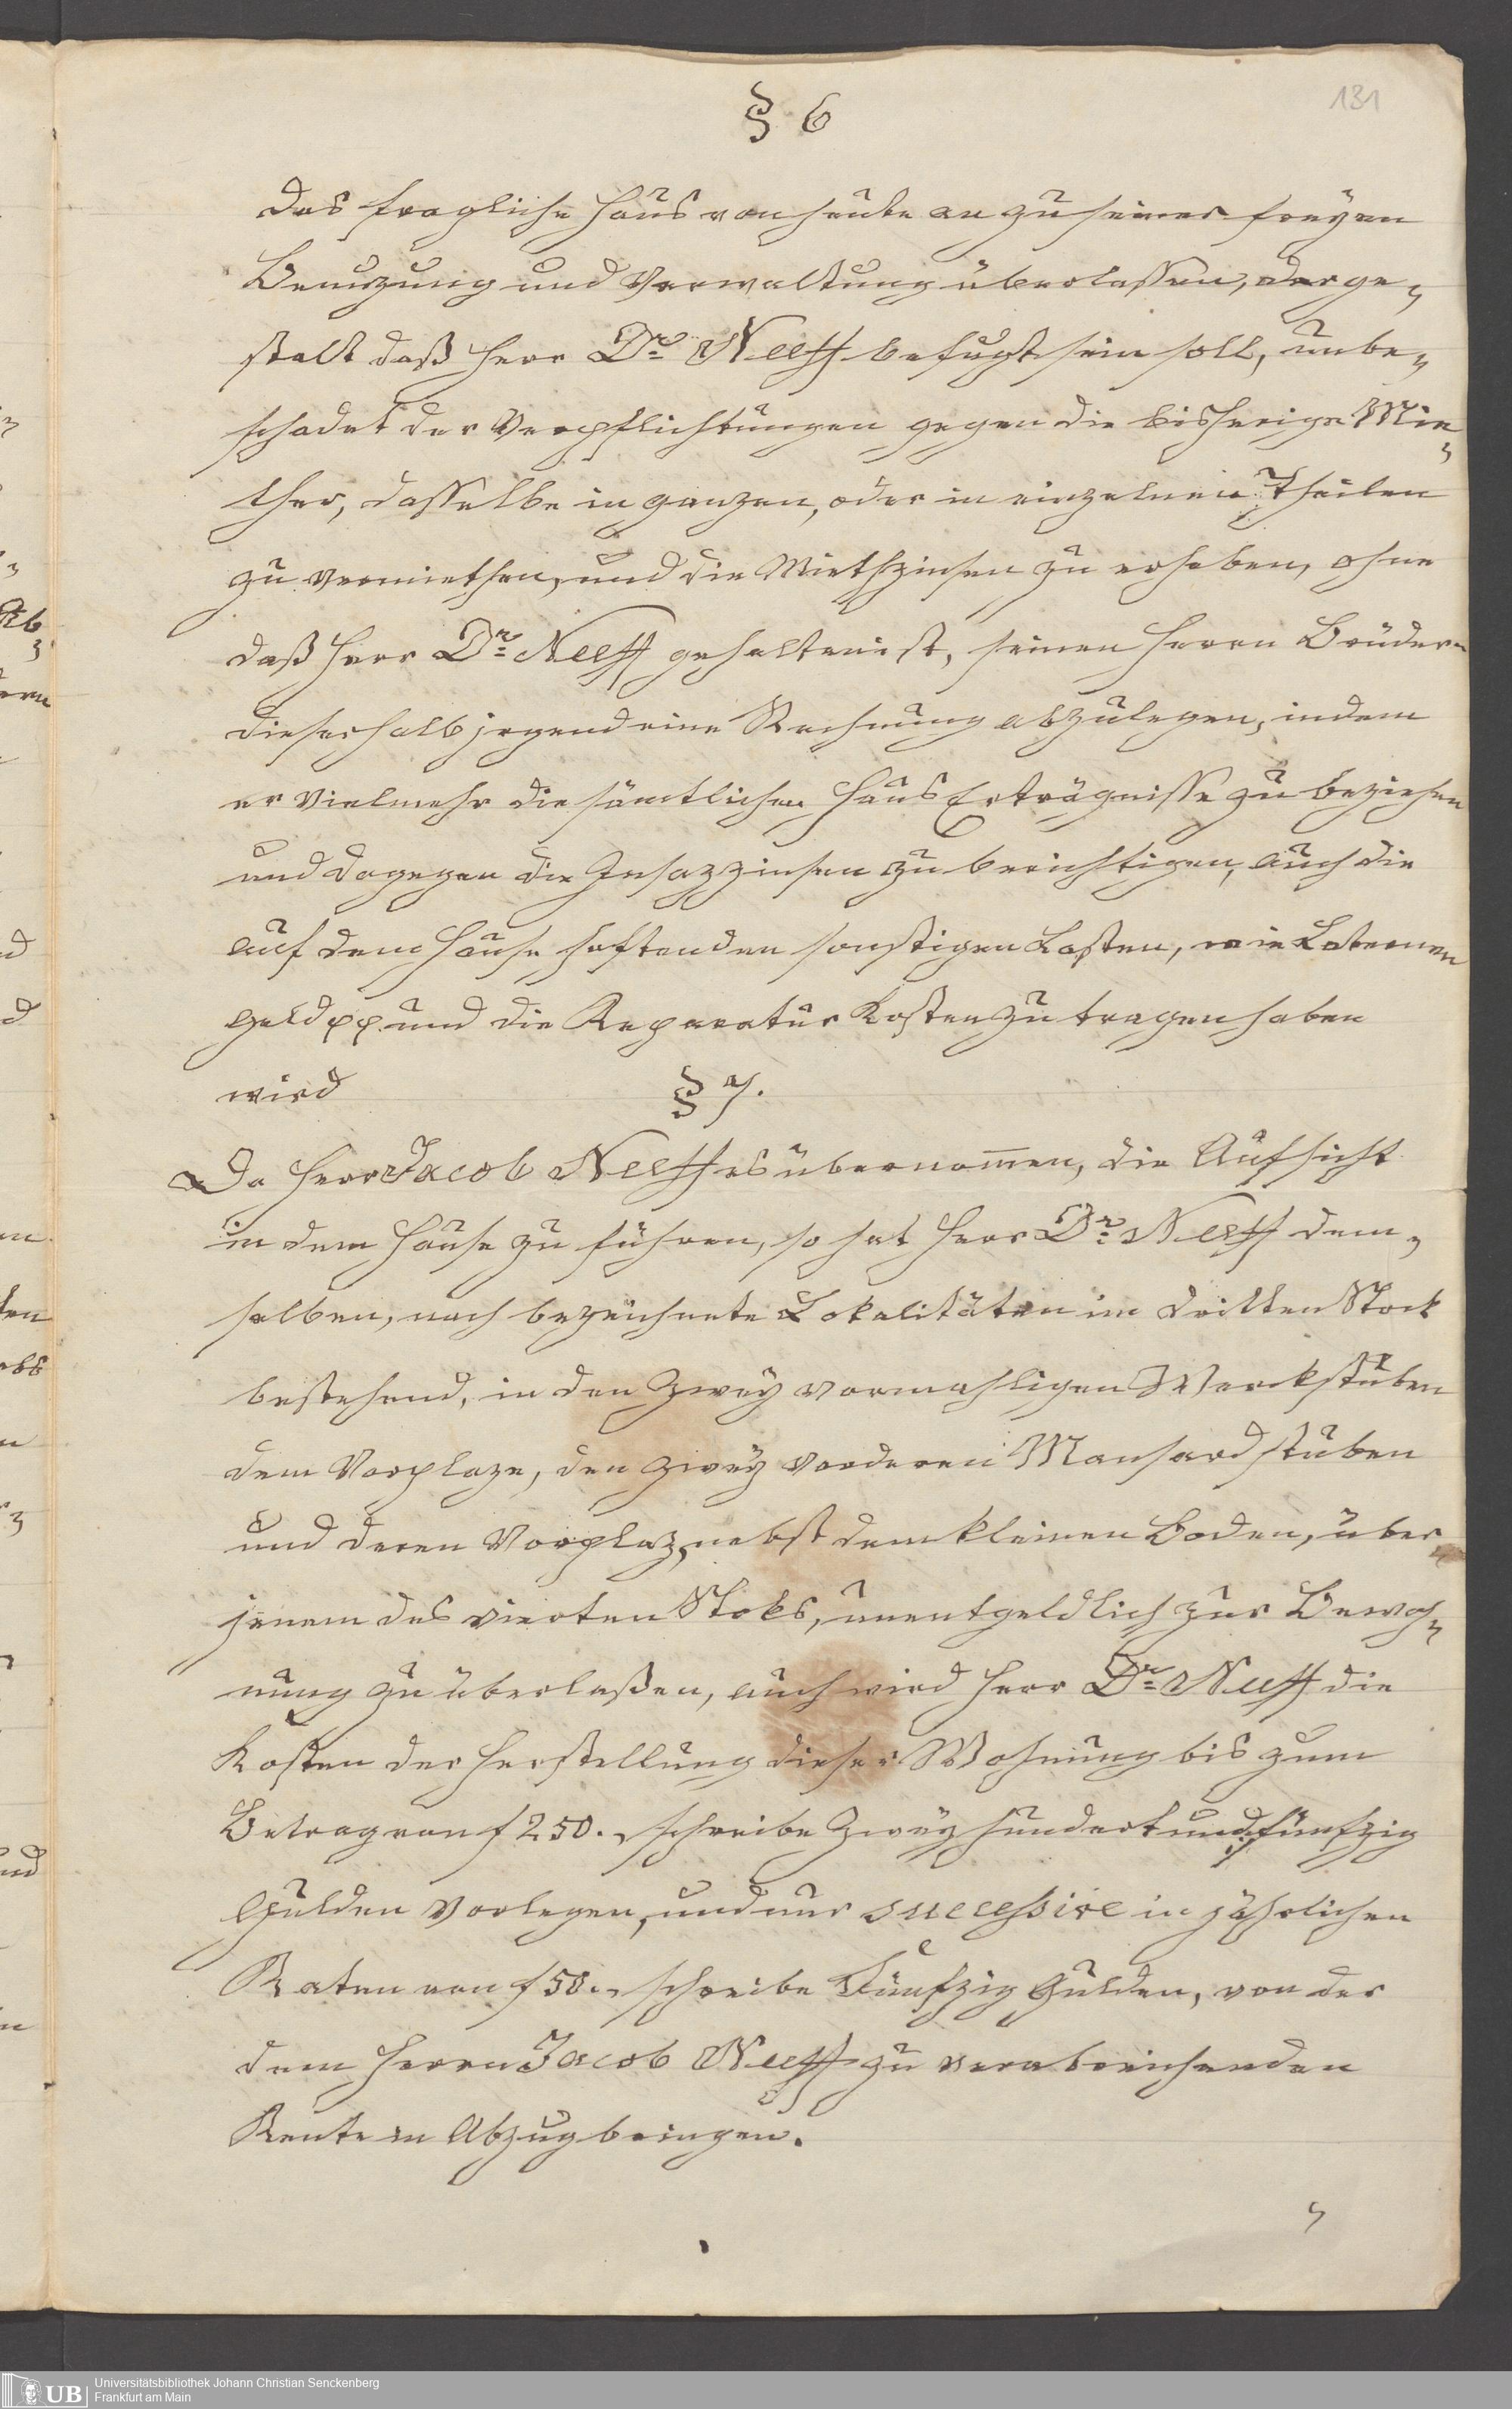 131
§ 6
das fragliche Haus von heute an zu seiner freyen
Benuzung und Verwaltung überlassen, derge-
stalt daß Herr Dr. Neeff befugt sein soll, unbe-
schadet der Verpflichtungen gegen die bisherige Mie-
ther, dasselbe in ganzen, oder in einzelnen Theilen
zu vermiethen, und die Miethzinsen zu erheben, ohne
daß Herr Dr. Neeff gehalten ist, seinen Herrn Brüdern
dieserhalb irgend eine Rechnung abzulegen, indem
er vielmehr die sämtlichen Haus Erträgnisse zu beziehen
und dagegen die Insazzinsen zu berichtigen, auch die
auf dem Hause haftenden sonstigen Lasten, wie Laternen
geld pp. und die Reparatur Kosten zu tragen haben
wird
§ 7.
Da Herr Jacob Neeff es übernommen, die Aufsicht
in dem Hause zu führen, so hat Herr Dr. Neeff dem-
selben, nach bezeichnete Lokalitäten im dritten Stock
bestehend, in den zwey vormahligen Werckstuben
dem Vorplaze, den zwey vorderen Mansardstuben
und deren Vorplaz, nebst dem kleinen Boden, über
jenem des vierten Stoks, unentgeldlich zur Bewoh-
nung zu überlaßen, auch wird Herr Dr. Neeff die
Kosten der Herstellung dieser Wohnung bis zum
Betrag von f 250. schreibe Zwey hundert und fünfzig
Gulden vorlegen, und nur successive in jährlichen
Raten von f 50. schreibe Fünfzig Gulden, von der
dem Herrn Jacob Neeff zu verabreichenden
Rente in Abzug bringen.
UB
Universitätsbibliothek Johann Christian Senckenberg
Frankfurt am Main